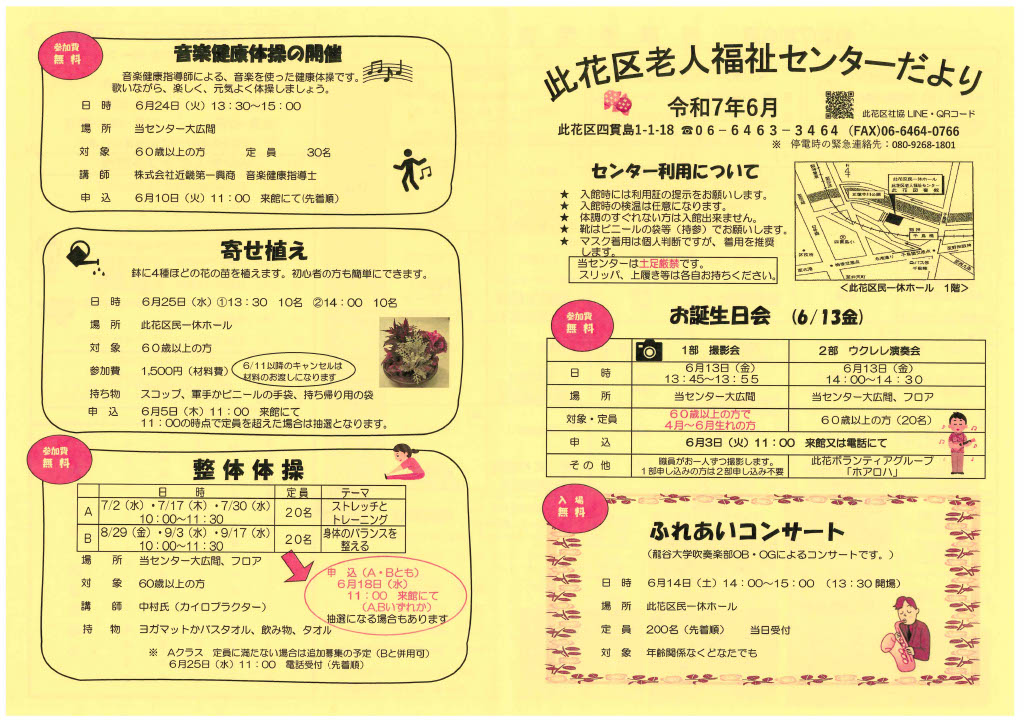 此花区老人福祉センターだより
令和7年6月
此花区社協 LINE・QRコード
此花区四貫島1-1-18 ☎06-6463-3464 (FAX)06-6464-0766
※ 停電時の緊急連絡先：080-9268-1801
センター利用について
★ 入館時には利用証の提示をお願いします。
★ 入館時の検温は任意になります。
★ 体調のすぐれない方は入館出来ません。
★ 靴はビニールの袋等（持参）でお願いします。
★ マスク着用は個人判断ですが、着用を推奨
します。
当センターは土足厳禁です。
スリッパ、上履き等は各自お持ちください。
此花区民一休ホール
此花区老人福祉センター
此花図書館
＜此花区民一休ホール 1階＞
参加費
無料
お誕生日会 (6/13金)
1部 撮影会
2部 ウクレレ演奏会
日 時
6月13日（金）
13：45～13：55
6月13日（金）
14：00～14：30
場 所
当センター大広間
当センター大広間、フロア
対象・定員
60歳以上の方で
4月～6月生れの方
60歳以上の方（20名）
申 込
6月3日（火）11：00 来館又は電話にて
その他
職員がお一人ずつ撮影します。
1部申し込みの方は2部申し込み不要
此花ボランティアグループ
「ホアロハ」
入 場
無料
ふれあいコンサート
（龍谷大学吹奏楽部OB・OGによるコンサートです。）
日 時 6月14日（土）14：00～15：00 （13：30開場）
場 所 此花区民一休ホール
定 員 200名（先着順） 当日受付
対 象 年齢関係なくどなたでも
参加費
無料
音楽健康体操の開催
音楽健康指導師による、音楽を使った健康体操です。
歌いながら、楽しく、元気よく体操しましょう。
日 時 6月24日（火）13：30～15：00
場 所 当センター大広間
対 象 60歳以上の方 定 員 30名
講 師 株式会社近畿第一興商 音楽健康指導士
申 込 6月10日（火）11：00 来館にて(先着順)
寄せ植え
鉢に4種ほどの花の苗を植えます。初心者の方も簡単にできます。
日 時 6月25日（水）①13：30 10名 ②14：00 10名
場 所 此花区民一休ホール
対 象 60歳以上の方
参加費 1,500円（材料費）
6/11以降のキャンセルは
材料のお渡しになります
持ち物 スコップ、軍手かビニールの手袋、持ち帰り用の袋
申 込 6月5日（木）11：00 来館にて
11：00の時点で定員を超えた場合は抽選となります。
参加費
無料
整体体操
日 時 定員 テーマ
A 7/2（水）・7/17（木）・7/30（水）
10：00～11：30
20名
ストレッチと
トレーニング
B 8/29（金）・9/3（水）・9/17（水）
10：00～11：30
20名
身体のバランスを
整える
場 所 当センター大広間、フロア
対 象 60歳以上の方
講 師 中村氏（カイロプラクター）
持 物 ヨガマットかバスタオル、飲み物、タオル
申 込（A・Bとも）
6月18日（水）
11：00 来館にて
（A,Bいずれか）
抽選になる場合もあります
※ Aクラス 定員に満たない場合は追加募集の予定（Bと併用可）
6月25日（水）11：00 電話受付（先着順）